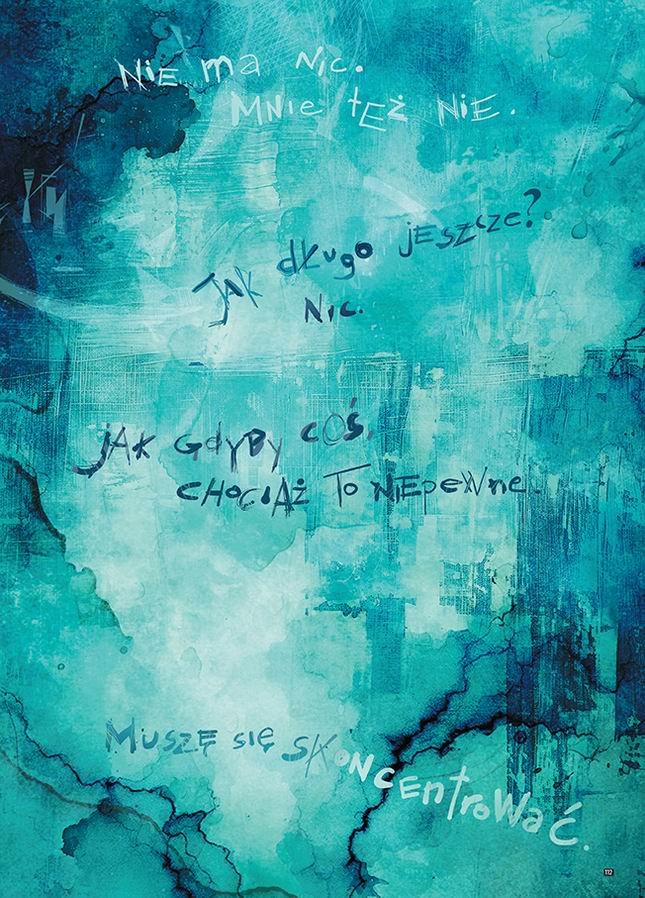 NiE ma Nic.
MNie tEż NiE.
JAK dŁugo jESZcze?
Nic.
jAK GdyBy COŚ,
CHOCiAŻ TO NiEpeWne.
MuSZĘ się SKoNCEntroWaĆ.
112